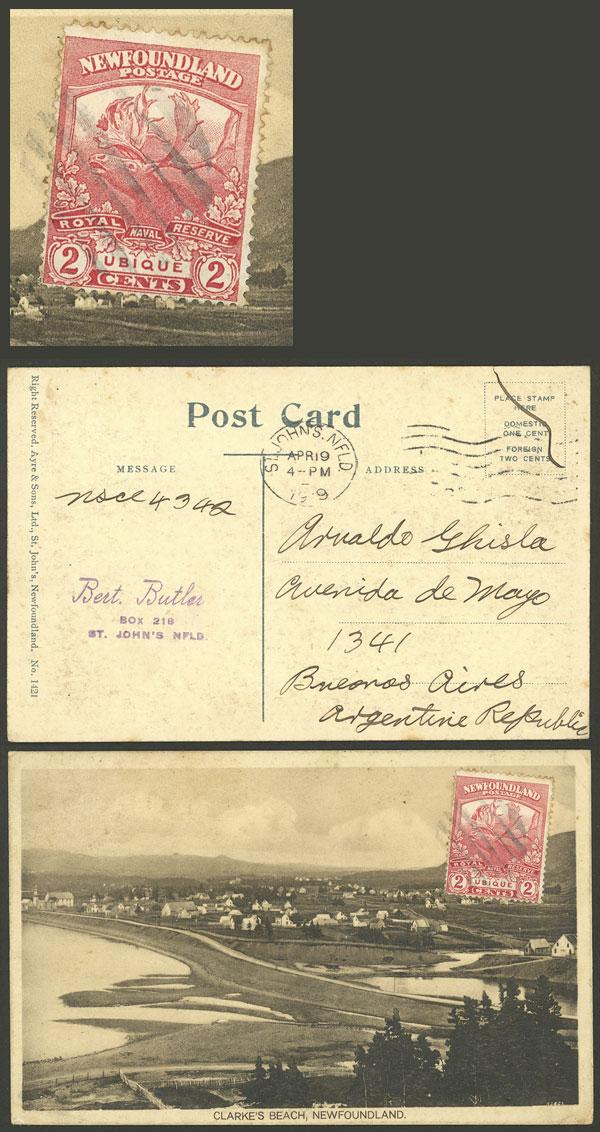 NEWFOUNDLAND
POSTAGE
ROYAL NAVAL RESERVE
2 UBIQUE 2
CENTS
Right Reserved. Ayre & Sons, Ltd., St. John's, Newfoundland. No. 1421
Post Card
PLACE STAMP
HERE
DOMESTIC
ONE CENT
FOREIGN
TWO CENTS
ST. JOHN'S. NFLD.
APR 19
4-PM
MESSAGE
ADDRESS
Arnaldo Ghisla
Avenida de Mayo
1341
Buenos Aires
Argentine Republic
Bert. Butler
BOX 218
ST. JOHN'S NFLD.
NEWFOUNDLAND
POSTAGE
ROYAL NAVAL RESERVE
2 UBIQUE 2
CENTS
CLARKE'S BEACH, NEWFOUNDLAND.